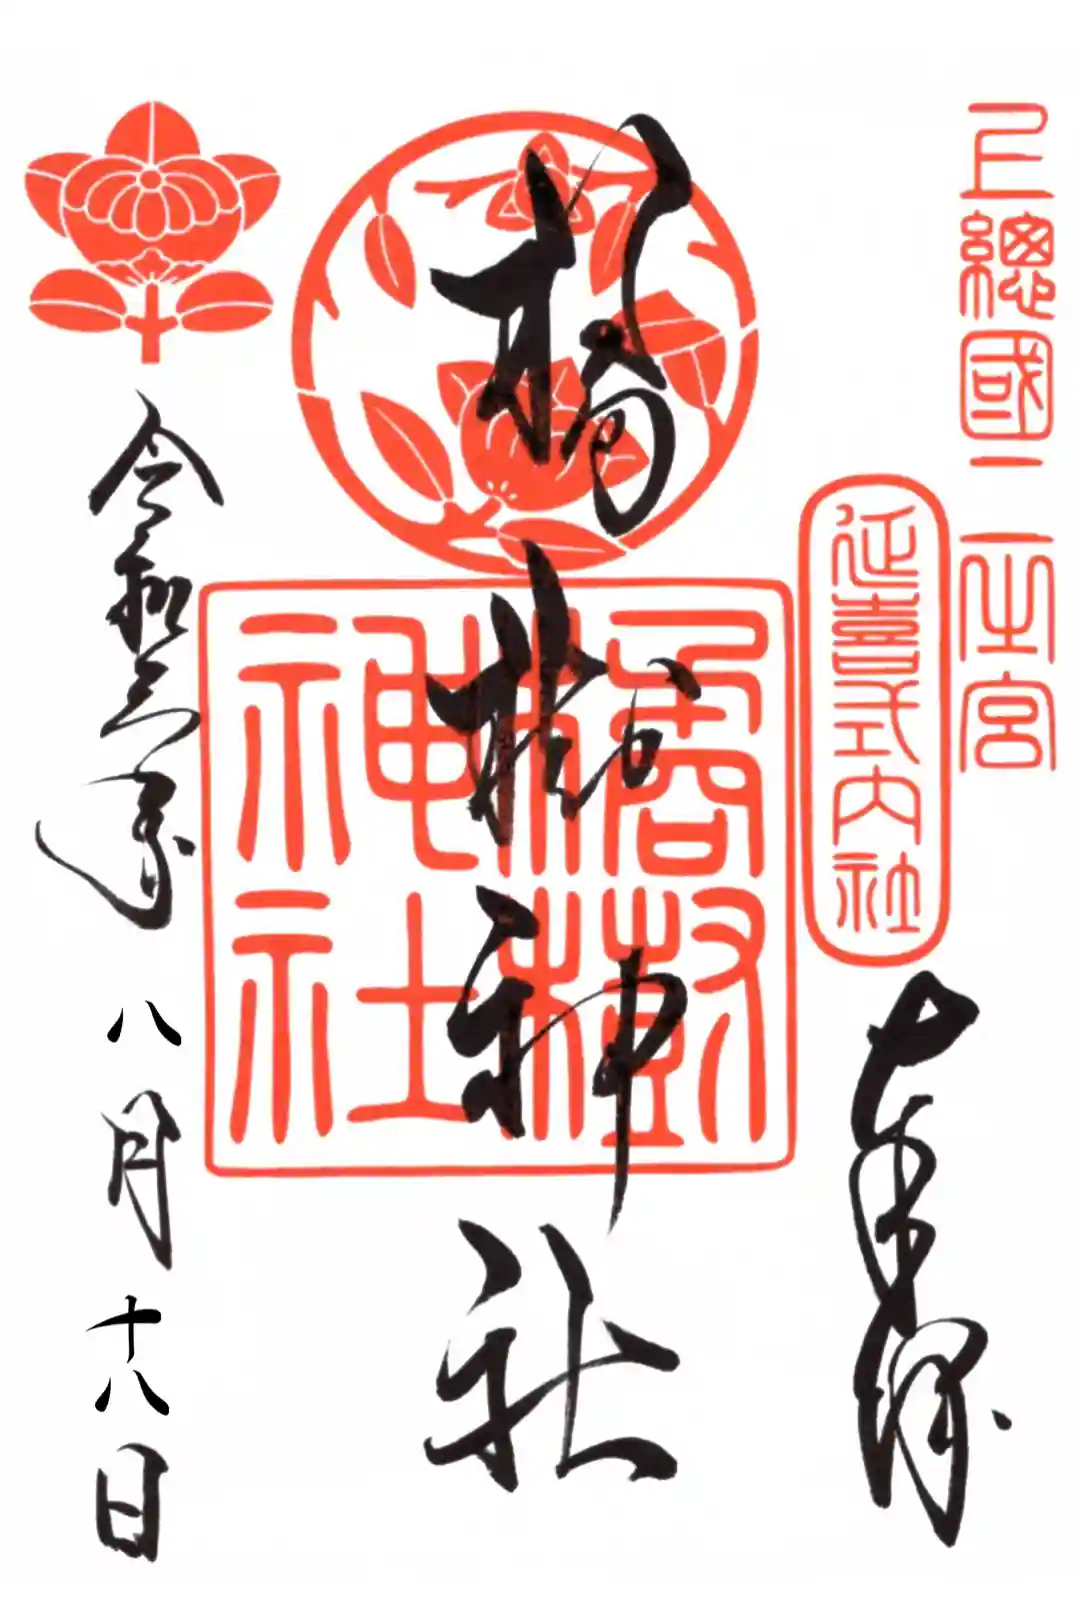 上總國二之宮
延喜式内社
奉拝
橘樹神社
橘樹神社
令和三年八月十八日